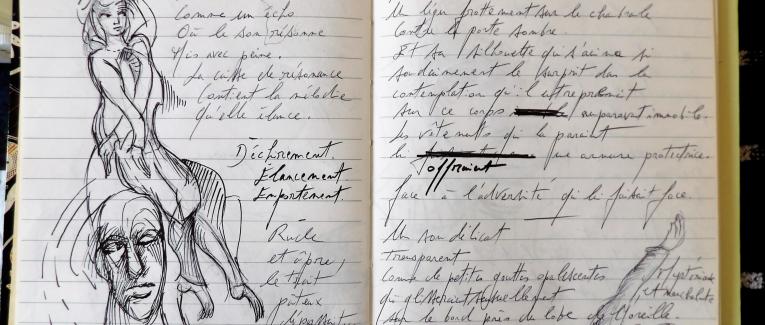 Comme un écho
Où le son résonne
Mis avec peine.
La caisse de résonance
Contient la mélodie
qu'elle élance.
Déchirement.
Élancement.
Emportement.
Rude
et âpre,
le trait
Un léger frottement sur le
contre la porte sombre.
Et sa silhouette qui s'anima si
soudainement le surprit dans la
contemplation qu'il entreprenait
sur ce corps auparavant immobile.
les vêtements qui la paraient
lui offraient une armure protectrice.
face à l'adversité qui lui faisait face.
Un son délicat
Transparent
comme de petites gouttes opalescentes
qui
sur le bord près du lobe de l'oreille.
Mystérieuse
et